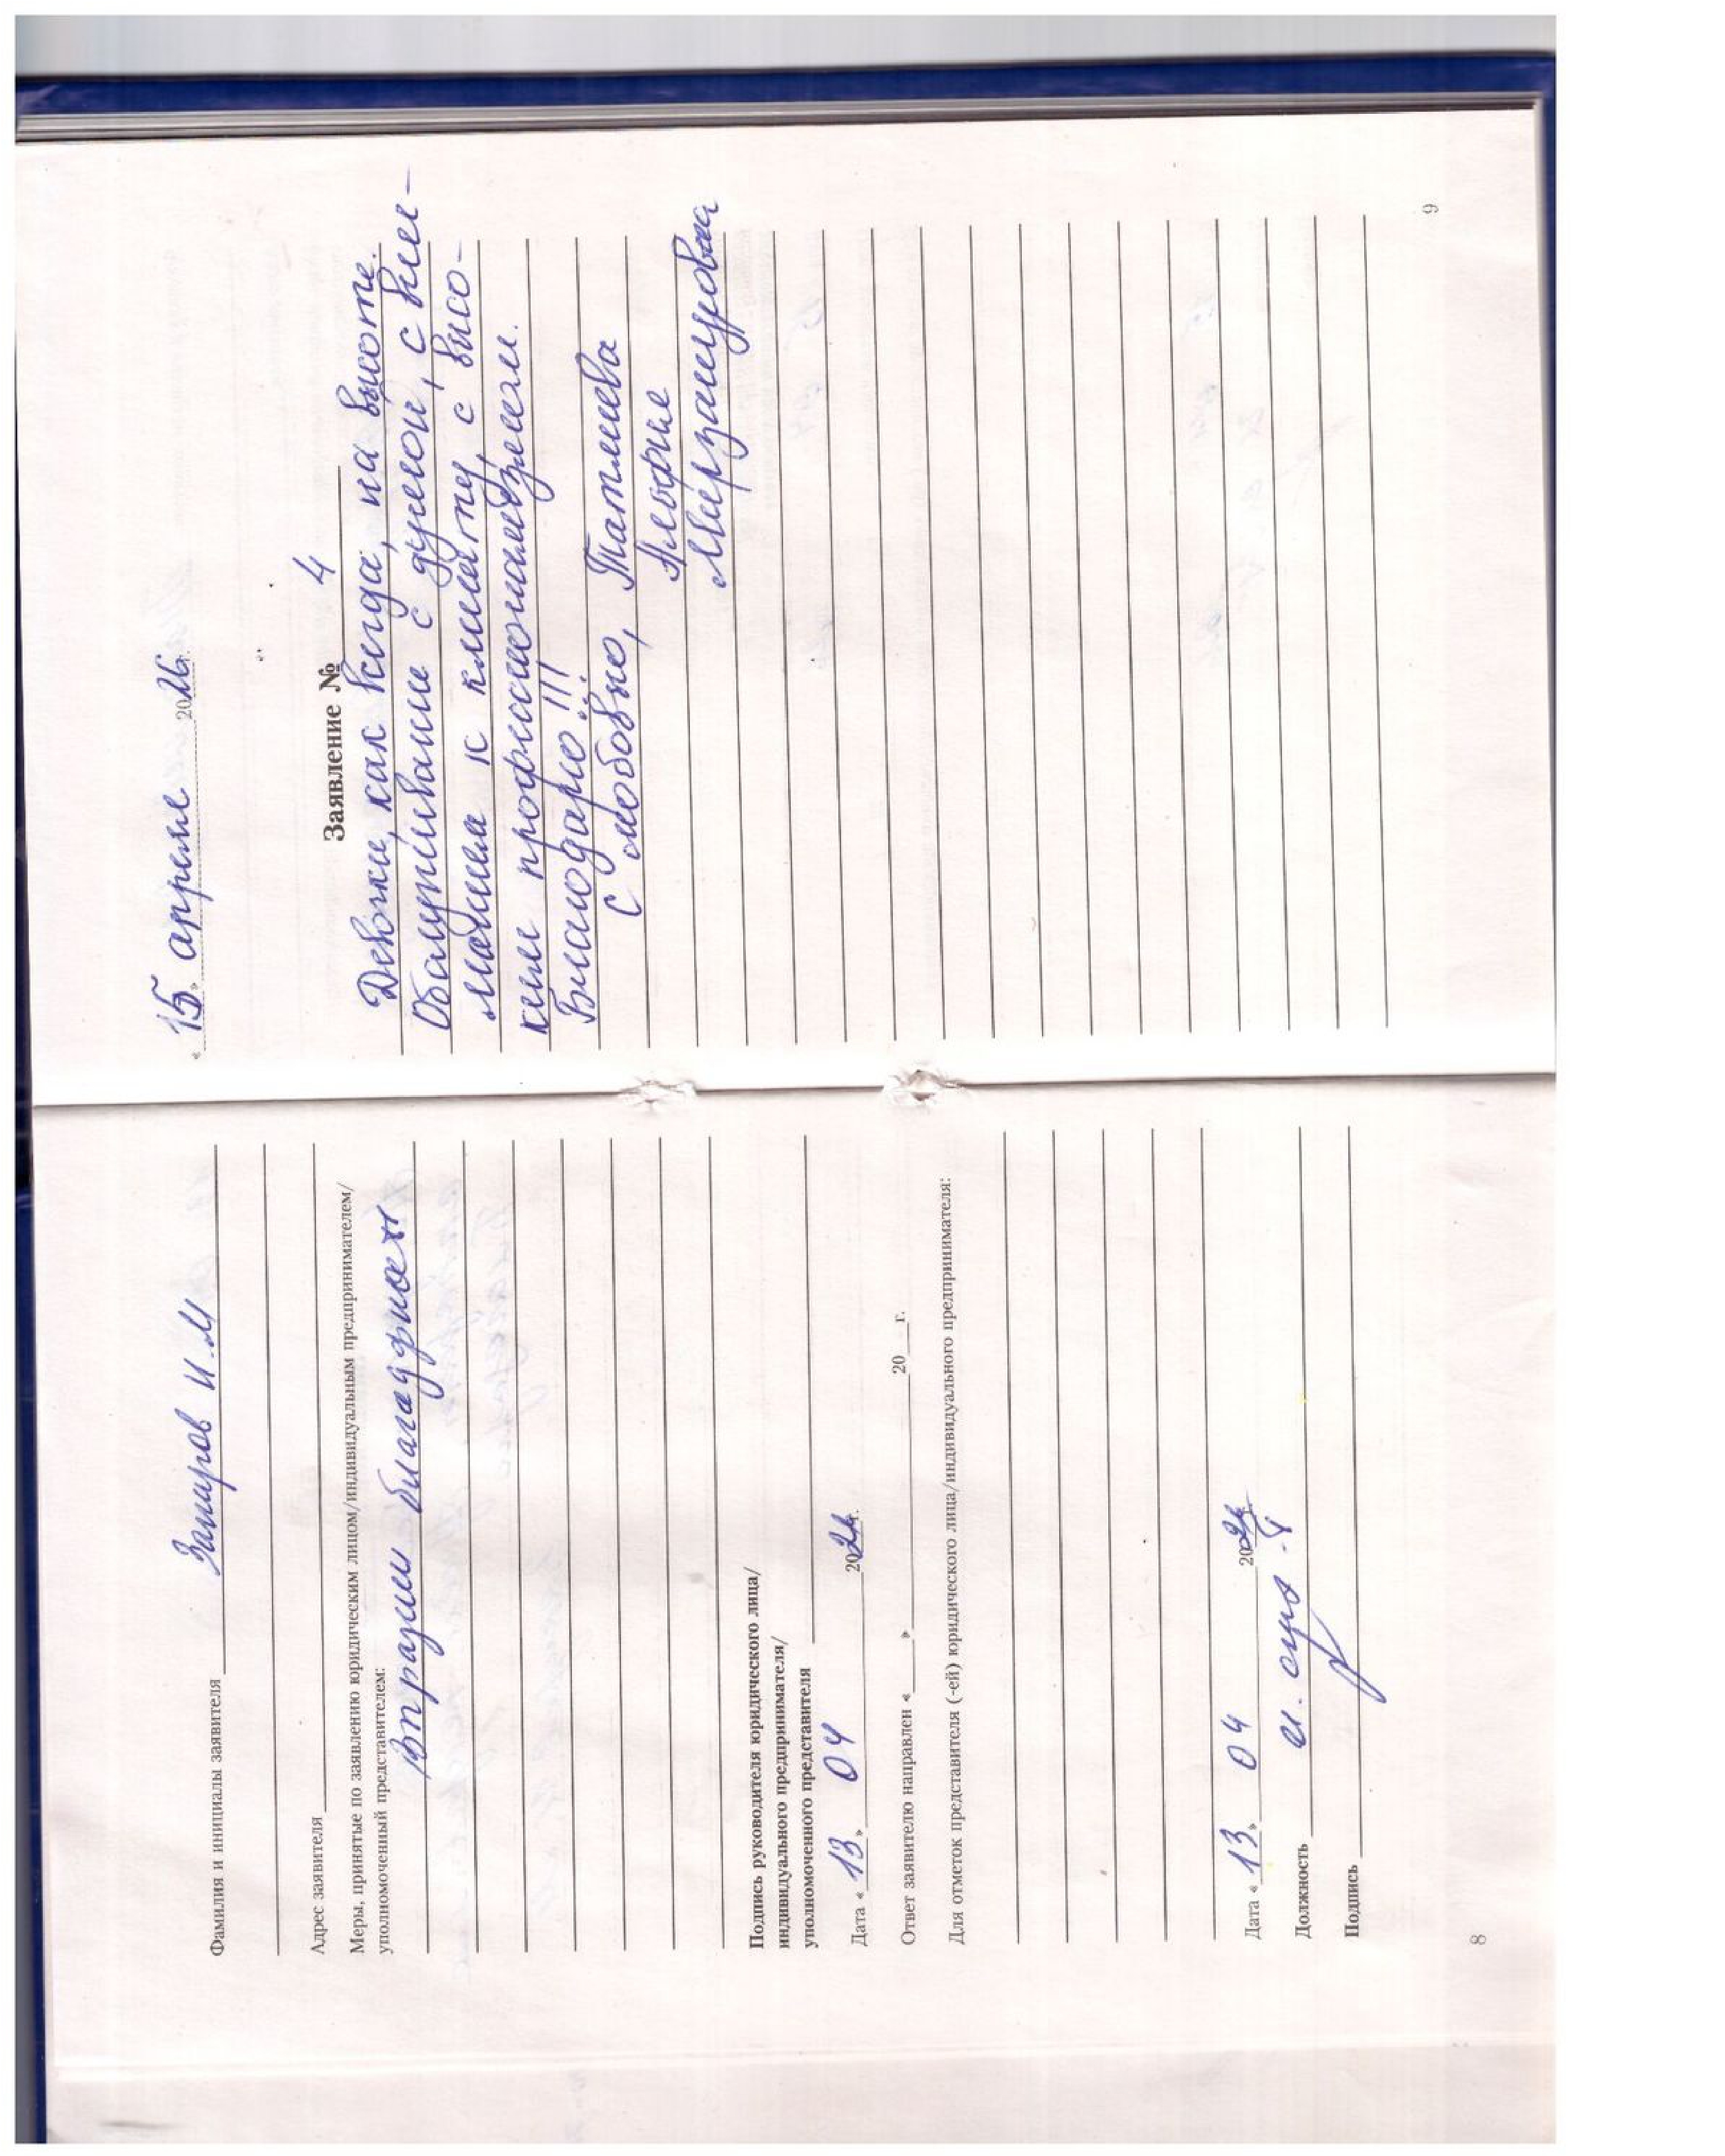 Фамилия и инициалы заявителя Запиров И.М
Адрес заявителя
Меры, принятые по заявлению юридическим лицом/индивидуальным предпринимателем/
уполномоченный представителем:
благадарность
Подпись руководителя юридического лица/
индивидуального предпринимателя/
уполномоченного представителя
Дата « 13 » 04 20 г.
Ответ заявителю направлен « » 20 г.
Для отметок представителя (-ей) юридического лица/индивидуального предпринимателя:
Дата « 13 » 04 20
Должность
Подпись
8
« 15 » апреля 2026г.
Заявление № 4
Девочки, как всегда, на высоте.
Обслуживание с душой, с вни-
манием к клиенту, с высо-
ким профессионализмом.
Благодарю!!!
С любовью, Татлиева
Мирзаицовна
9